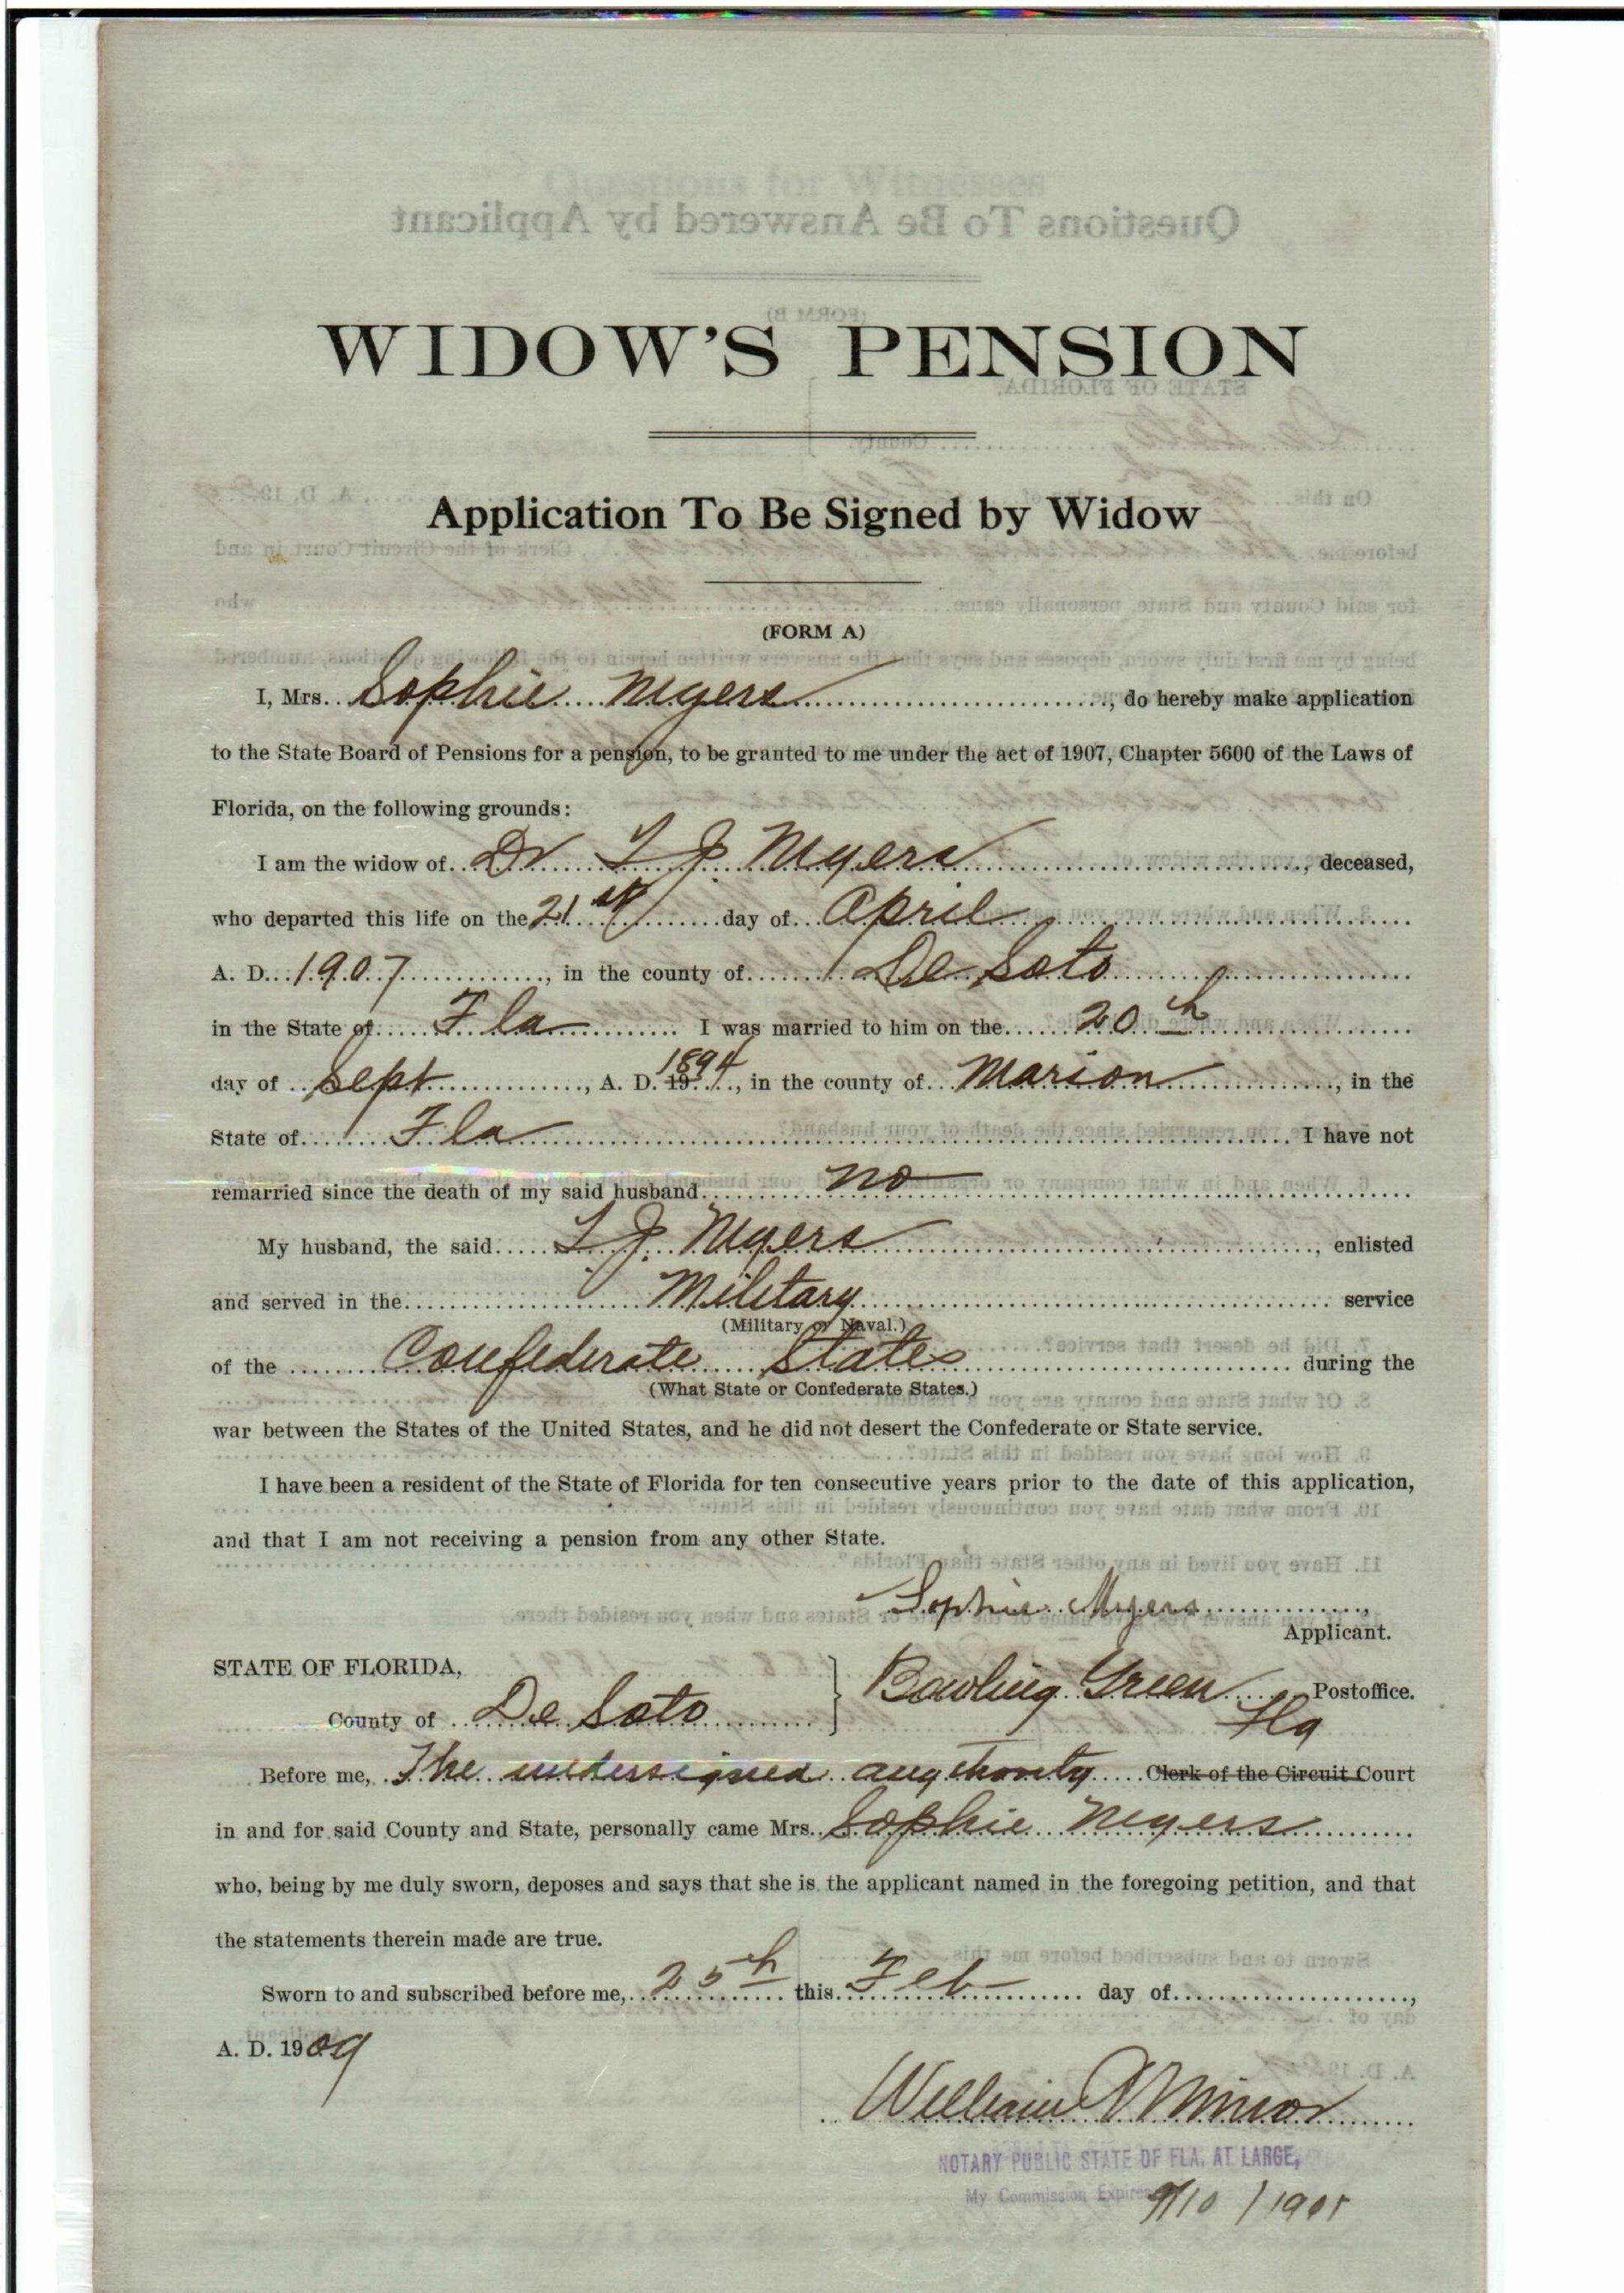 WIDOW'S PENSION
Application To Be Signed by Widow
(FORM A)
I, Mrs. Sophie Myers, do hereby make application
to the State Board of Pensions for a pension, to be granted to me under the act of 1907, Chapter 5600 of the Laws of
Florida, on the following grounds:
I am the widow of Dr J. Myers, deceased,
who departed this life on the 21st day of April
A. D. 1907, in the county of De Soto
in the State of Fla I was married to him on the 20th
day of Sept, A. D. 19 1894, in the county of Marion, in the
State of Fla I have not
remarried since the death of my said husband no
My husband, the said J. Myers, enlisted
and served in the Military service
(Military or Naval.)
of the Confederate States during the
(What State or Confederate States.)
war between the States of the United States, and he did not desert the Confederate or State service.
I have been a resident of the State of Florida for ten consecutive years prior to the date of this application,
and that I am not receiving a pension from any other State.
Sophie Myers
Applicant.
STATE OF FLORIDA,
County of De Soto
Bowling Green Postoffice.
Fla
Before me, The undersigned augthority Clerk of the Circuit Court
in and for said County and State, personally came Mrs. Sophie Myers
who, being by me duly sworn, deposes and says that she is the applicant named in the foregoing petition, and that
the statements therein made are true.
Sworn to and subscribed before me, 25th this Feb day of
A. D. 1909
William Minor
NOTARY PUBLIC STATE OF FLA. AT LARGE,
My Commission Expires